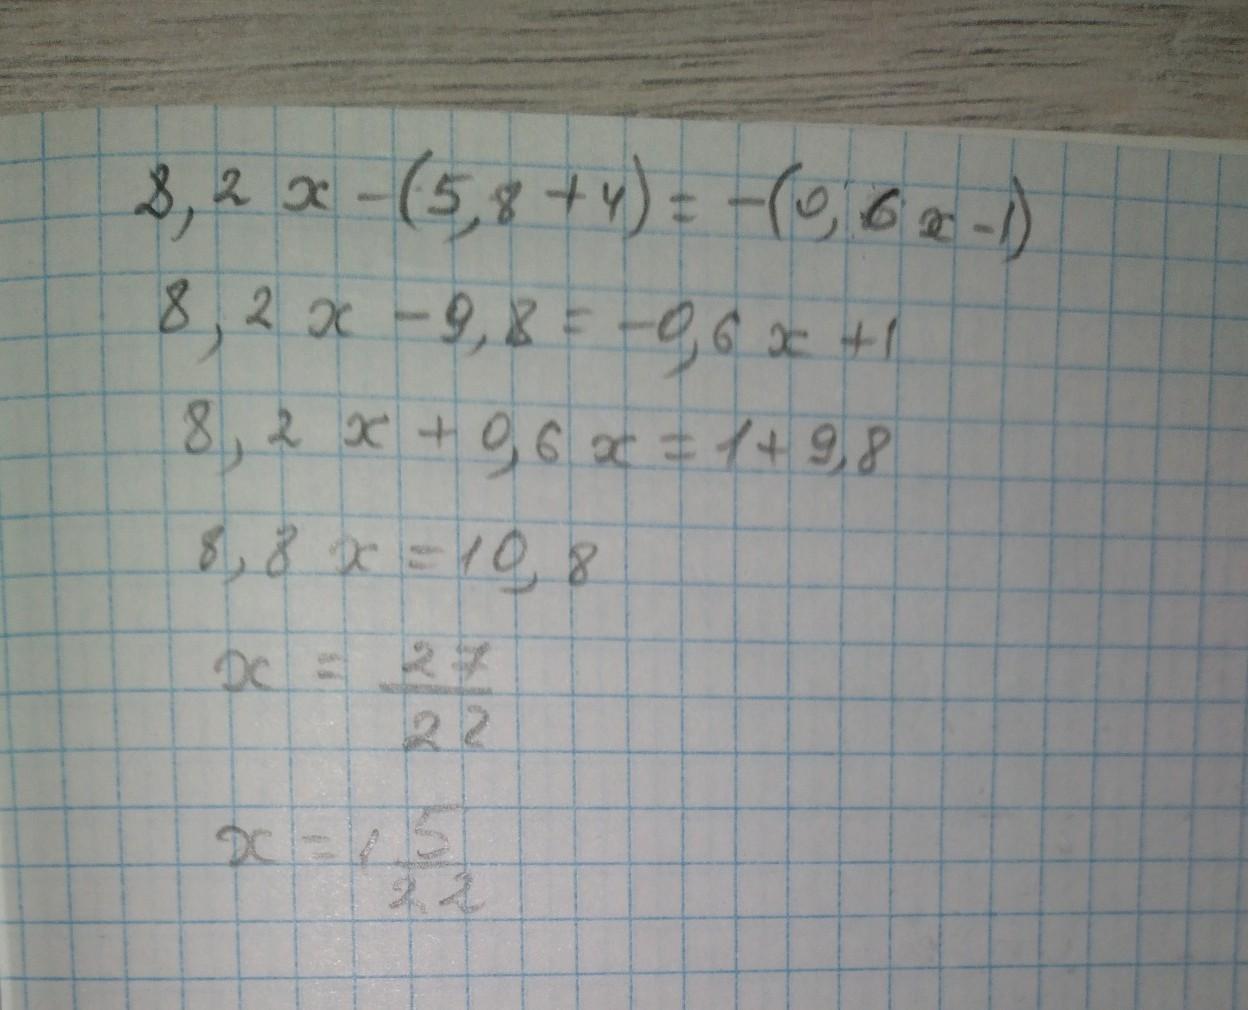 8,2 x - (5,8 + 4) = -(0,6 x - 1)
8,2 x - 9,8 = -0,6 x + 1
8,2 x + 0,6 x = 1 + 9,8
8,8 x = 10,8
x = 27/22
x = 1 5/22